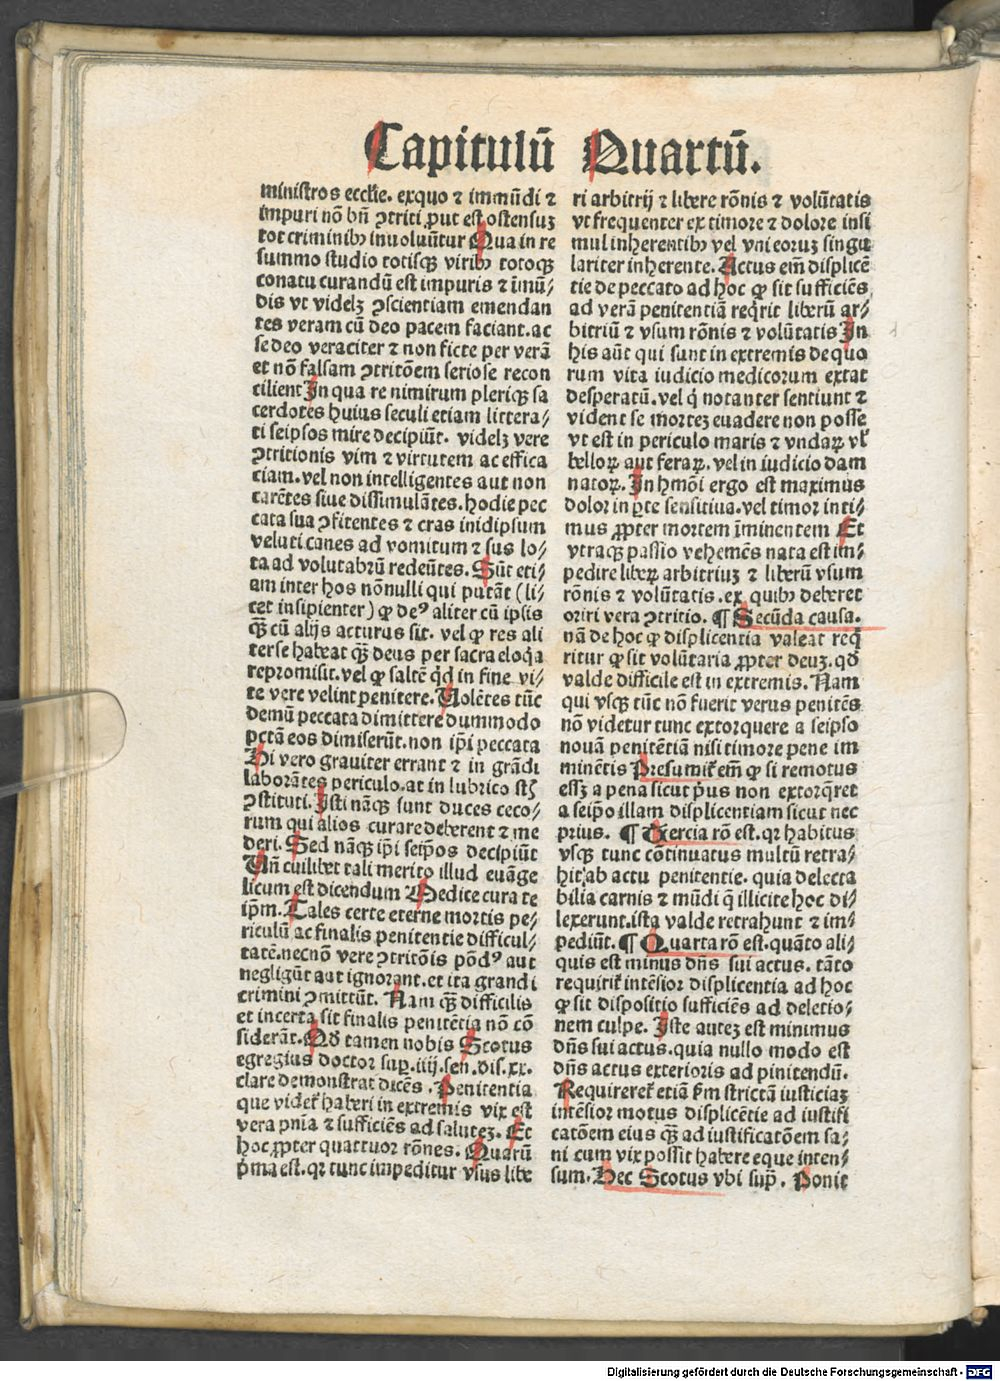 Capitulū Quartū.
ministros eccl̄ie. exquo ⁊ immūdi ⁊
impuri nō bn̄ ꝯtriti ꝓut est ostensuꝫ
tot criminibꝰ inuoluūtur Qua in re
summo studio totisqꝫ viribꝰ totoqꝫ
conatu curandū est impuris ⁊ īmū/
dis vt videlꝫ ꝯscientiam emendan
tes veram cū deo pacem faciant. ac
se deo veraciter ⁊ non ficte per verā
et nō falsam ꝯtritōem seriose recon
cilient In qua re nimirum pleriqꝫ sa
cerdotes huius seculi etiam littera/
ti seipsos mire decipiūt. videlꝫ vere
ꝯtritionis vim ⁊ virtutem ac effica
ciam. vel non intelligentes aut non
carētes siue dissimulātes. hodie pec
cata sua ꝯfitentes ⁊ cras inidipsum
veluti canes ad vomitum ⁊ sus lo/
ta ad volutabrū redeūtes. Sūt eti/
am inter hos nōnulli qui putāt (li/
cet insipienter) ꝙ deꝰ aliter cū ipsis
qꝫ̄ cū alijs acturus sit. vel ꝙ res ali
ter se habeat qꝫ̄ deus per sacra eloq̄a
repromisit. vel ꝙ saltē q̄d in fine vi/
te vere velint penitere. Uolētes tūc
demū peccata dimittere dummodo
pctā eos dimiserūt. non ip̄i peccata
Hi vero grauiter errant ⁊ in grādi
laborātes periculo. at in lubrico st̄
ꝯstituti. Isti nāqꝫ sunt duces ceco/
rum qui alios curare deberent ⁊ me
deri. Sed nāqꝫ ip̄i seip̄os decipiūt
Un̄ cuilibet tali merito illud euāge
licum est dicendum Medice cura te
ip̄m. Tales certe eterne mortis pe/
riculū ac finalis penitentie difficul/
tatē. necnō vere ꝯtritōis pōdꝰ aut
negligūt aut ignorant. et ita grandi
crimini ꝯmittūt. Nam qꝫ̄ difficilis
et incerta sit finalis penitētia nō cō
siderāt. Qd̄ tamen nobis Scotus
egregius doctor suꝑ. iiij. sen. dis. xx.
clare demonstrat dicēs. Penitentia
que videt̄ haberi in extremis vix est
vera pn̄ia ⁊ sufficiēs ad salutez. Et
hoc ꝓpter quattuor rōnes. Quarū
p̄ma est. qꝛ tunc impeditur vsus libe
ri arbitrij ⁊ libere rōnis ⁊ volūtatis
vt frequenter ex timore ⁊ dolore insi
mul inherentibꝰ vel vni eoruꝫ singu
lariter inherente. Actus em̄ displicē
tie de peccato ad hoc ꝙ sit sufficiēs
ad verā penitentiā reqͥrit liberū ar/
bitriū ⁊ vsum rōnis ⁊ volūtatis In
his aūt qui sunt in extremis de quo
rum vita iudicio medicorum extat
desperatū. vel q̄ notanter sentiunt ⁊
vident se mortez euadere non posse
vt est in periculo maris ⁊ vndaꝝ vl̄
belloꝝ aut feraꝝ. vel in iudicio dam
natoꝝ. In hmōi ergo est maximus
dolor in ꝑte sensitiua. vel timor inti/
mus ꝓpter mortem īminentem Et
vtraqꝫ passio vehemēs nata est im/
pedire libeꝝ arbitriuꝫ ⁊ liberū vsum
rōnis ⁊ volūtatis. ex quibꝰ deberet
oriri vera ꝯtritio. ¶ Secūda causa.
nā de hoc ꝙ displicentia valeat req̄
ritur ꝙ sit volūtaria ꝓpter deuꝫ. qd̄
valde difficile est in extremis. Nam
qui vsqꝫ tūc nō fuerit verus penitēs
nō videtur tunc extorquere a seipso
nouā penitētiā nisi timore pene im
minētis Presumit̄ em̄ ꝙ si remotus
essꝫ a pena sicut p̄us non extorq̄ret
a seip̄o illam displicentiam sicut nec
prius. ¶ Tercia rō est. qꝛ habitus
vsqꝫ tunc cōtinuatus multū retra/
hit ab actu penitentie. quia delecta
bilia carnis ⁊ mūdi q̄ illicite hoc di/
lexerunt. ista valde retrahunt ⁊ im/
pediūt. ¶ Quarta rō est. quāto ali/
quis est minus dn̄s sui actus. tāto
requirit̄ intēsior displicentia ad hoc
ꝙ sit dispositio sufficiēs ad deletio/
nem culpe. Iste autez est minimus
dn̄s sui actus. quia nullo modo est
dn̄s actus exterioris ad pinitendū.
Requireret̄ etiā ẜm strictā iusticiaꝫ
intēsior motus displicētie ad iustifi
catōem eius qꝫ̄ ad iustificatōem sa/
ni cum vix possit habere eque inten/
sum. Hec Scotus vbi sup̄. Ponit
Digitalisierung gefördert durch die Deutsche Forschungsgemeinschaft - DFG